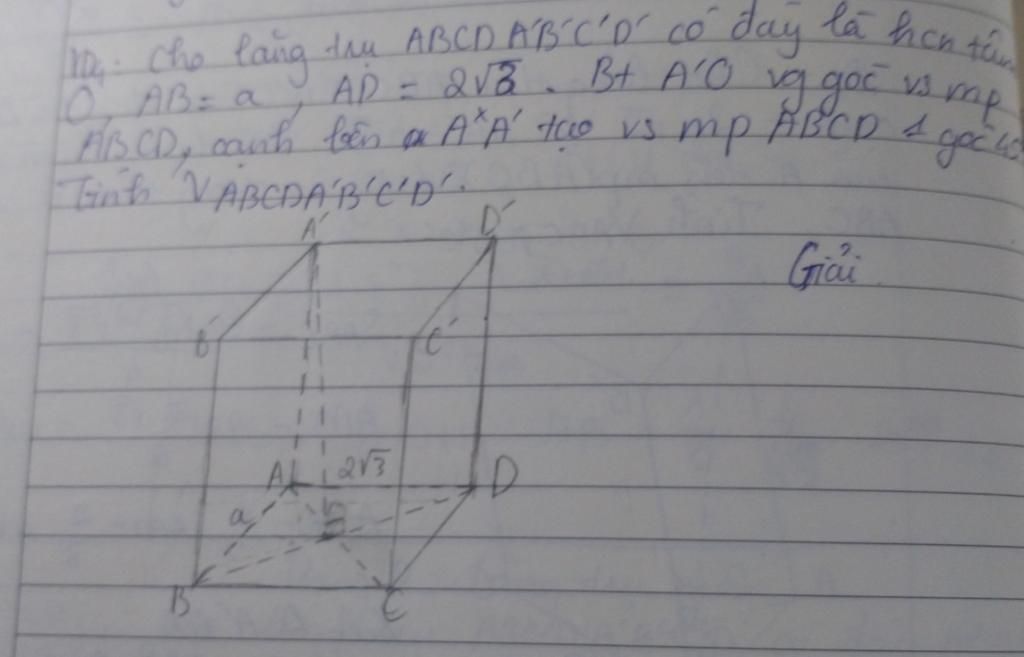 Cho lăng trụ ABCD A'B'C'D' có đáy là hcn tâm
O, AB = a, AD = 2√3. Bt A'O vg góc vs mp
ABCD, cạnh bên A A' tạo vs mp ABCD 1 góc
Tính V ABCDA'B'C'D'.
A' D'
Giải
B' C'
A 2√3 D
a
B C